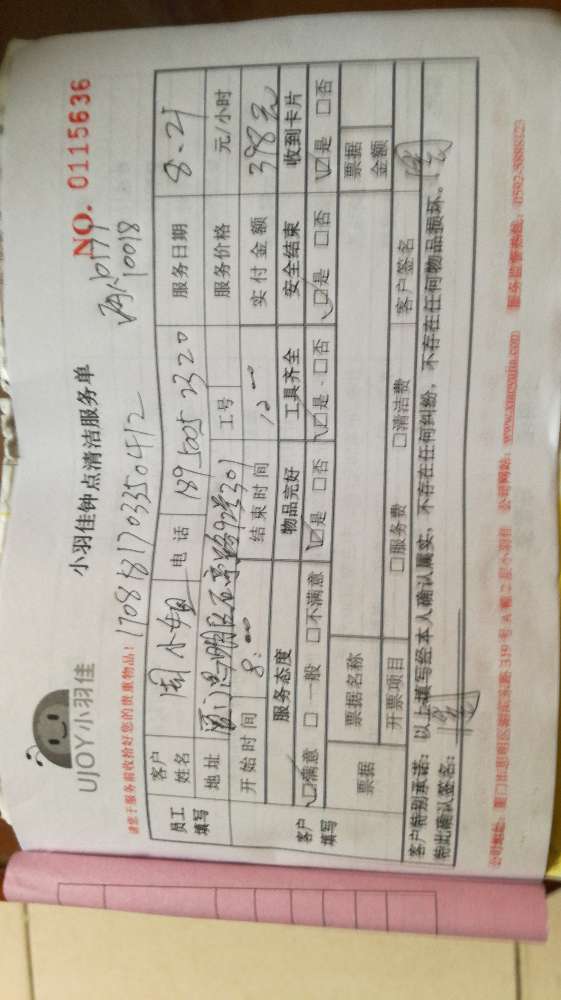 UJOY小羽佳
小羽佳钟点清洁服务单
NO. 0115636
请您于服务前收拾好您的贵重物品!
10018
员工填写
客户姓名 周小姐 电话 189 5005 2320 服务日期 8.21
地址 工号 服务价格 元/小时
开始时间 8:00 结束时间 12:00 实付金额 398元
客户填写
服务态度 物品完好 工具齐全 安全结束 收到卡片
☑满意 □一般 □不满意 ☑是 □否 ☑是 □否 ☑是 □否 ☑是 □否
票据 票据名称 票据金额
开票项目 □服务费 □清洁费 客户签名
客户特别承诺:以上填写经本人确认属实,不存在任何纠纷,不存在任何物品损坏。
特此确认签名:
公司网站:www.xiaoyujia.com 服务监督热线:0592-5888123